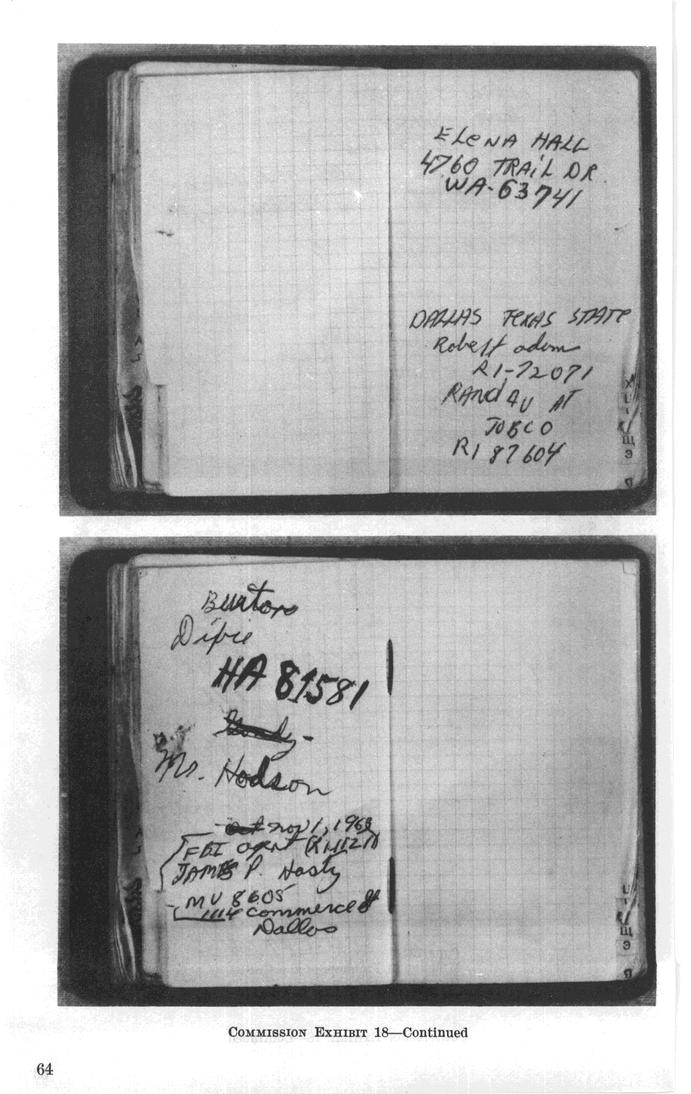 ELENA HALL
4760 TRAIL DR.
WA-63741
DALLAS TEXAS STATE
Robert adam
RI-72071
RANdAU AT
JOBCO
RI 87604
Burton
Dixie
HA 81581
Mr. Hodson
nov 1, 1963
FBI agent (RI11211)
JAMES P. Hasty
MU 8605
1114 Commerce St
Dallas
Ш
Э
Ш
Э
COMMISSION EXHIBIT 18—Continued
64